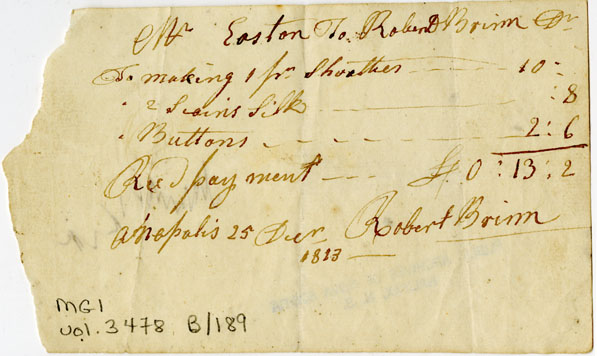 Mr Easton To Robert Brinn Dr
To making 1 pr 10 :
" 2 Scains Silk : 8
" Buttons 2 : 6
Rec'd payment 0 : 13 : 2
Anopolis 25 Decr Robert Brinn
1813
MG1
vol. 3478 B/189